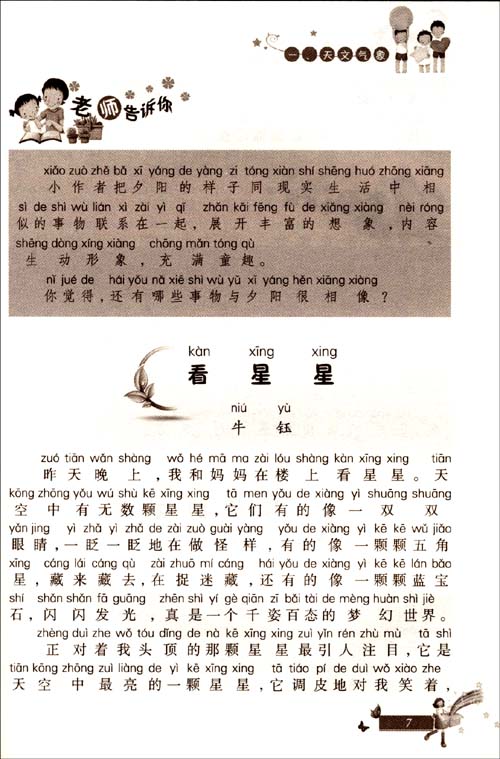 一、天文气象
老师告诉你
xiǎo zuò zhě bǎ xī yáng de yàng zi tóng xiàn shí shēng huó zhōng xiāng
小作者把夕阳的样子同现实生活中相
sì de shì wù lián xì zài yì qǐ zhǎn kāi fēng fù de xiǎng xiàng nèi róng
似的事物联系在一起，展开丰富的想象，内容
shēng dòng xíng xiàng chōng mǎn tóng qù
生动形象，充满童趣。
nǐ jué de hái yǒu nǎ xiē shì wù yǔ xī yáng hěn xiāng xiàng
你觉得，还有哪些事物与夕阳很相像？
kàn xīng xing
看星星
niú yù
牛钰
zuó tiān wǎn shàng wǒ hé mā ma zài lóu shàng kàn xīng xing tiān
昨天晚上，我和妈妈在楼上看星星。天
kōng zhōng yǒu wú shù kē xīng xing tā men yǒu de xiàng yì shuāng shuāng
空中有无数颗星星，它们有的像一双双
yǎn jing yì zhǎ yì zhǎ de zài zuò guài yàng yǒu de xiàng yì kē kē wǔ jiǎo
眼睛，一眨一眨地在做怪样，有的像一颗颗五角
xīng cáng lái cáng qù zài zhuō mí cáng hái yǒu de xiàng yì kē kē lán bǎo
星，藏来藏去，在捉迷藏，还有的像一颗颗蓝宝
shí shǎn shǎn fā guāng zhēn shì yí gè qiān zī bǎi tài de mèng huàn shì jiè
石，闪闪发光，真是一个千姿百态的梦幻世界。
zhèng duì zhe wǒ tóu dǐng de nà kē xīng xing zuì yǐn rén zhù mù tā shì
正对着我头顶的那颗星星最引人注目，它是
tiān kōng zhōng zuì liàng de yì kē xīng xing tā tiáo pí de duì wǒ xiào zhe
天空中最亮的一颗星星，它调皮地对我笑着，
7